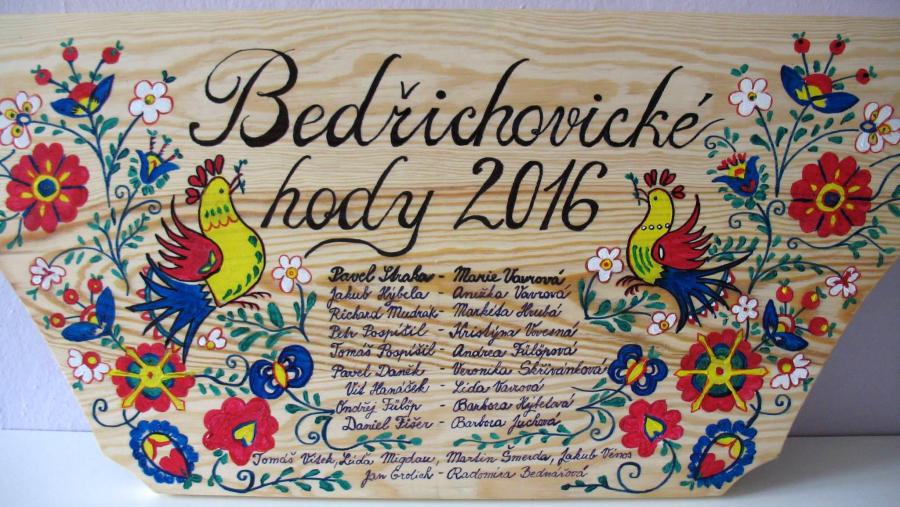 Bedřichovické
hody 2016
Pavel Straka - Marie Vavrová
Jakub Hýbela - Anežka Vávrová
Richard Mudrak - Markéta Hrubá
Petr Pospíšil - Kristýna Vovesná
Tomáš Pospíšil - Andrea Fülöpová
Pavel Daněk - Veronika Skřivánková
Vít Hanáček - Lída Vavrová
Ondřej Fülöp - Barbora Hýbelová
Daniel Fišer - Barbora Juchová
Tomáš Vítek, Liďa Migdau, Martin Šmerda, Jakub Věnos
Jan Grolich - Radomíra Bednářová